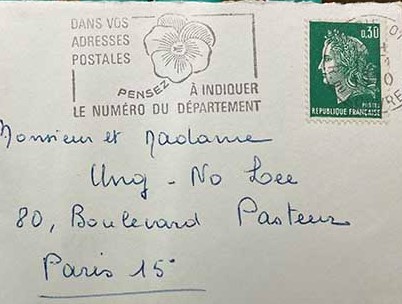 DANS VOS
ADRESSES
POSTALES
PENSEZ À INDIQUER
LE NUMÉRO DU DÉPARTEMENT
0,30
POSTES
REPUBLIQUE FRANÇAISE
Monsieur et Madame
Ung - No Lee
80, Boulevard Pasteur
Paris 15°